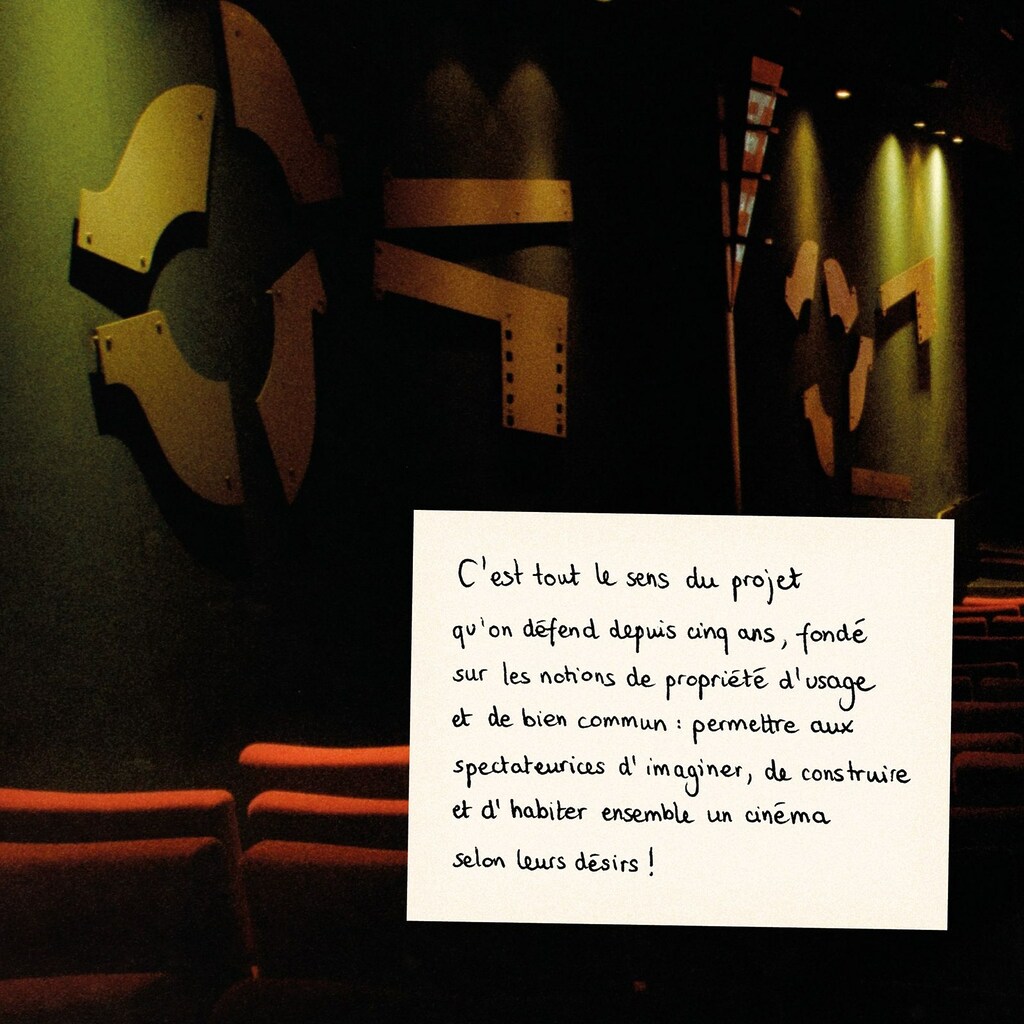 C'est tout le sens du projet
qu'on défend depuis cinq ans, fondé
sur les notions de propriété d'usage
et de bien commun : permettre aux
spectateurices d'imaginer, de construire
et d'habiter ensemble un cinéma
selon leurs désirs !